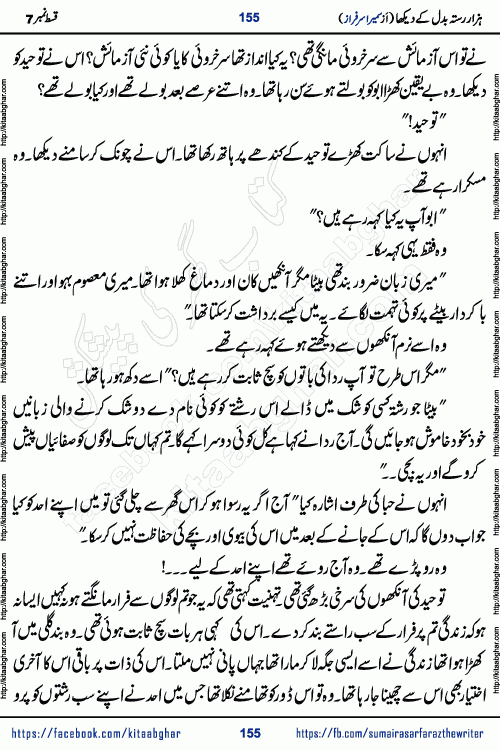 ہزار رستہ بدل کے دیکھا (از سمیرا سرفراز)
155
قسط نمبر 7
نے تو اس آزمائش سے سرخروئی مانگی تھی؟ یہ کیا انداز تھا سرخروئی کا یا کوئی نئی آزمائش؟ اس نے توحید کو
دیکھا۔ وہ بے یقین کھڑا ابو کو بولتے ہوئے سن رہا تھا۔ وہ اتنے عرصے بعد بولے تھے اور کیا بولے تھے؟
"توحید!"
انہوں نے ساکت کھڑے توحید کے کندھے پر ہاتھ رکھا تھا۔ اس نے چونک کر سامنے دیکھا۔ وہ
مسکرا رہے تھے۔
"ابو آپ یہ کیا کہہ رہے ہیں؟"
وہ فقط یہی کہہ سکا۔
"میری زبان ضرور بند تھی بیٹا مگر آنکھیں کان اور دماغ کھلا ہوا تھا۔ میری معصوم بہو اور اتنے
با کردار بیٹے پر کوئی تہمت لگائے۔ یہ میں کیسے برداشت کر سکتا تھا۔"
وہ اسے نرم آنکھوں سے دیکھتے ہوئے کہہ رہے تھے۔
"مگر اس طرح تو آپ ردا کی باتوں کو سچ ثابت کر رہے ہیں؟" اسے دکھ ہو رہا تھا۔
"بیٹا جو رشتہ کسی کو شک میں ڈالے اس رشتے کو کوئی نام دے دو شک کرنے والی زبانیں
خود بخود خاموش ہو جائیں گی۔ آج ردا نے کہا ہے کل کوئی دوسرا کہے گا۔ تم کہاں تک لوگوں کو صفائیاں پیش
کرو گے اور یہ بچی۔۔"
انہوں نے حبا کی طرف اشارہ کیا" آج اگر یہ رسوا ہو کر اس گھر سے چلی گئی تو میں اپنے احد کو کیا
جواب دوں گا کہ اس کے جانے کے بعد میں اس کی بیوی اور بچے کی حفاظت نہیں کر سکا۔"
وہ رو پڑے تھے۔ وہ آج روئے تھے اپنے احد کے لیے۔۔۔!
توحید کی آنکھوں کی سرخی بڑھ گئی تھی۔ تہنیت کہتی تھی کہ یہ جو تم لوگوں سے فرار مانگتے ہو نہ کہیں ایسا نہ
ہو کہ زندگی تم پر فرار کے سب راستے بند کر دے۔ اس کی کہی ہر بات سچ ثابت ہوئی تھی۔ وہ بند گلی میں آ
کھڑا ہوا تھا زندگی نے اسے ایسی جگہ لا کر مارا تھا جہاں پانی نہیں ملتا۔ اس کی ذات پر باقی اس کا آخری
اختیار بھی اس سے چھینا جا رہا تھا۔ وہ تو اس ڈور کو تھامنے نکلا تھا جس میں احد نے اپنے سب رشتوں کو پرو
https://facebook.com/kitaabghar
155
https://fb.com/sumairasarfarazthewriter
http://kitaabghar.com